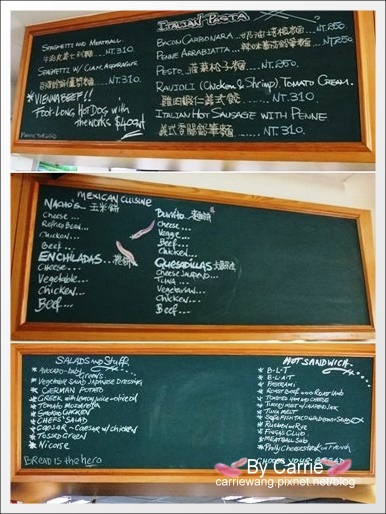 ITALIAN PASTA
SPAGHETTI AND MEATBALL
NT.310
SPAGHETTI W/ CLAM, ASPARAGUS
NT.310
*VIENNA BEEF!!
FOOT-LONG HOT DOG with
the works $400
BACON CARBONARA 奶油培根麵 NT.250
PENNE ARRABIATTA NT.250
PESTO 菠菜松子麵 NT.250
RAVIOLI (Chicken & Shrimp) TOMATO CREAM
雞肉蝦仁義式餃 NT.310
ITALIAN HOT SAUSAGE WITH PENNE
NT.310
MEXICAN CUISINE
NACHO'S 玉米餅
Cheese
Refried Bean
Chicken
Beef
ENCHILADAS
Cheese
Vegetable
Chicken
Beef
Burrito
Cheese
Veggie
Beef
Chicken
QUESADILLAS
CHEESE JALAPENO
TUNA
VEGETARIAN
CHICKEN
BEEF
SALADS AND Stuff
* AVOCADO-baby Greens
* VEGETABLE SALAD JAPANESE DRESSING
* GERMAN POTATO
* GREEK with lemon juice
* TOMATO MOZZARELLA
* SMOKED CHICKEN
* CHEFS' SALAD
* CAESAR - CAESAR w/ chicken
* TOSSED GREEN
* NICOISE
BREAD IS the hero
HOT SANDWICH
* B-L-T
* B-L-A-T
* PASTRAMI
* ROAST BEEF
* TOASTED HAM AND CHEESE
* TUNA MELT
* REUBEN ON RYE
* CLUB
* MEATBALL SUB
* Philly Cheesesteak on French
CHOOSE YOUR BREAD
By Carrie
carriewang.pixnet.net/blog